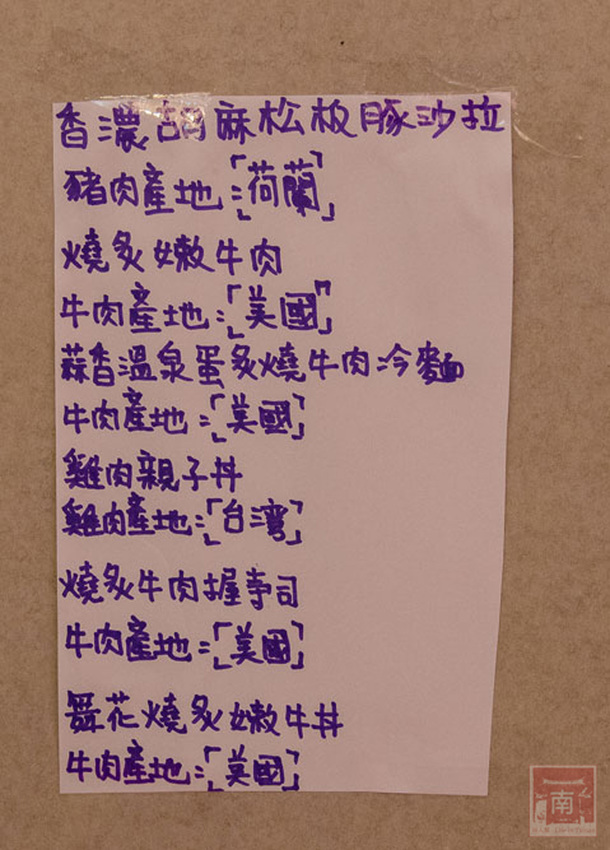 香濃胡麻松板豚沙拉
豬肉產地:「荷蘭」
燒炙嫩牛肉
牛肉產地:「美國」
蒜香溫泉蛋炙燒牛肉冷麵
牛肉產地:「美國」
雞肉親子丼
雞肉產地:「台灣」
燒炙牛肉握壽司
牛肉產地:「美國」
舞花燒炙嫩牛丼
牛肉產地:「美國」
南